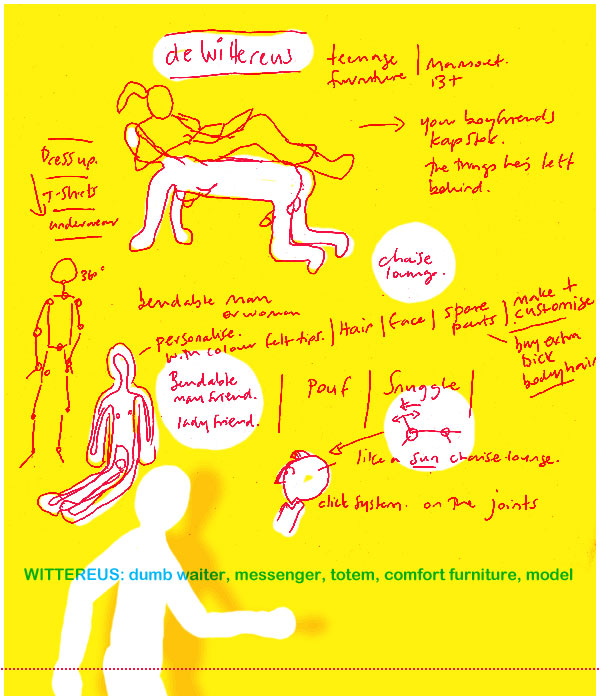 de Wittereus
teenage | Mansoet.
furniture | 13+
your boyfriends
kapstok.
the things he's left
behind.
Dress up.
T-shirts
underwear
chaise
lounge.
360°
bendable man
or woman
personalise.
with colour felt tips. | Hair | face | spare parts | make + customise
buy extra
Dick
bodyhair
Bendable
man friend.
lady friend.
| Pouf | Snuggle |
like a sun chaise lounge.
click system. on the joints
WITTEREUS: dumb waiter, messenger, totem, comfort furniture, model